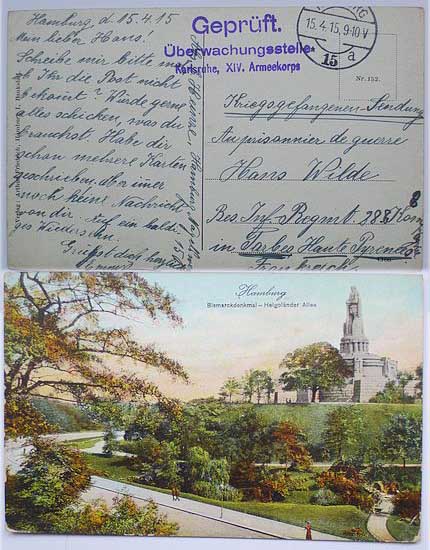 Hamburg, d 15.4.15
Mein lieben Hans!
Schreibe mir bitte mal
ob Ihr die Post nicht
bekomt? Würde gerne
alles schicken, was du
brauchst. Habe dir
schon mehrere Karten
geschrieben. Aber imer
noch keine Nachricht
von dir. Auf ein bald-
ges Wiedersehn.
Grüßt dich herzlich
Geprüft.
Überwachungsstelle
Karlsruhe, XIV. Armeekorps
15.4.15. 9-10 V
15 a
Nr. 152.
Kriegsgefangenen-Sendung
Au prisonnier de guerre
Hans Wilde
Res. Inf-Regmt. 28 8 Kom
in Tarbes Haute Pyrenées
Frankreich
Hamburg
Bismarckdenkmal – Helgoländer Allee